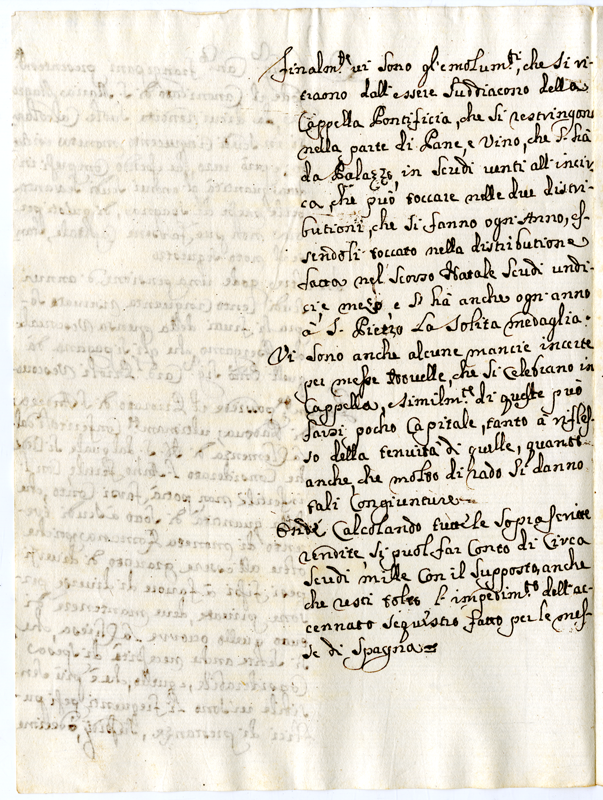 Finalm.te vi sono gl'emolum.ti, che si ri=
traono dall'essere Suddiacono della
Cappella Pontificia, che si restringono
nella parte di Pane, e Vino, che si hà
da Palazzo in Scudi venti all'incir=
ca, che può toccare nelle due distri=
butioni, che si fanno ogni Anno, es=
sendoli toccato nella distributione
fatta nel Scorso Natale Scudi undi=
ci e mezo, e si hà anche ogni anno
à S. Pietro La Solita medaglia.
Vi sono anche alcune mancie incerte
per messe Novelle, che si Celebrano in
Cappella, e similm.te di queste può
farsi pocho Capitale, tanto à rifles=
so della tenuità di quelle, quanto
anche, che molto di rado si danno
tali Congiunture
Onde Calcolando tutte le sopra scritte
rendite si puol far Conto di Circa
Scudi mille Con il Supposto, anche
che resti tolto l'impedim.to dell'ac=
cennato sequistro fatto per le mes=
se di Spagna